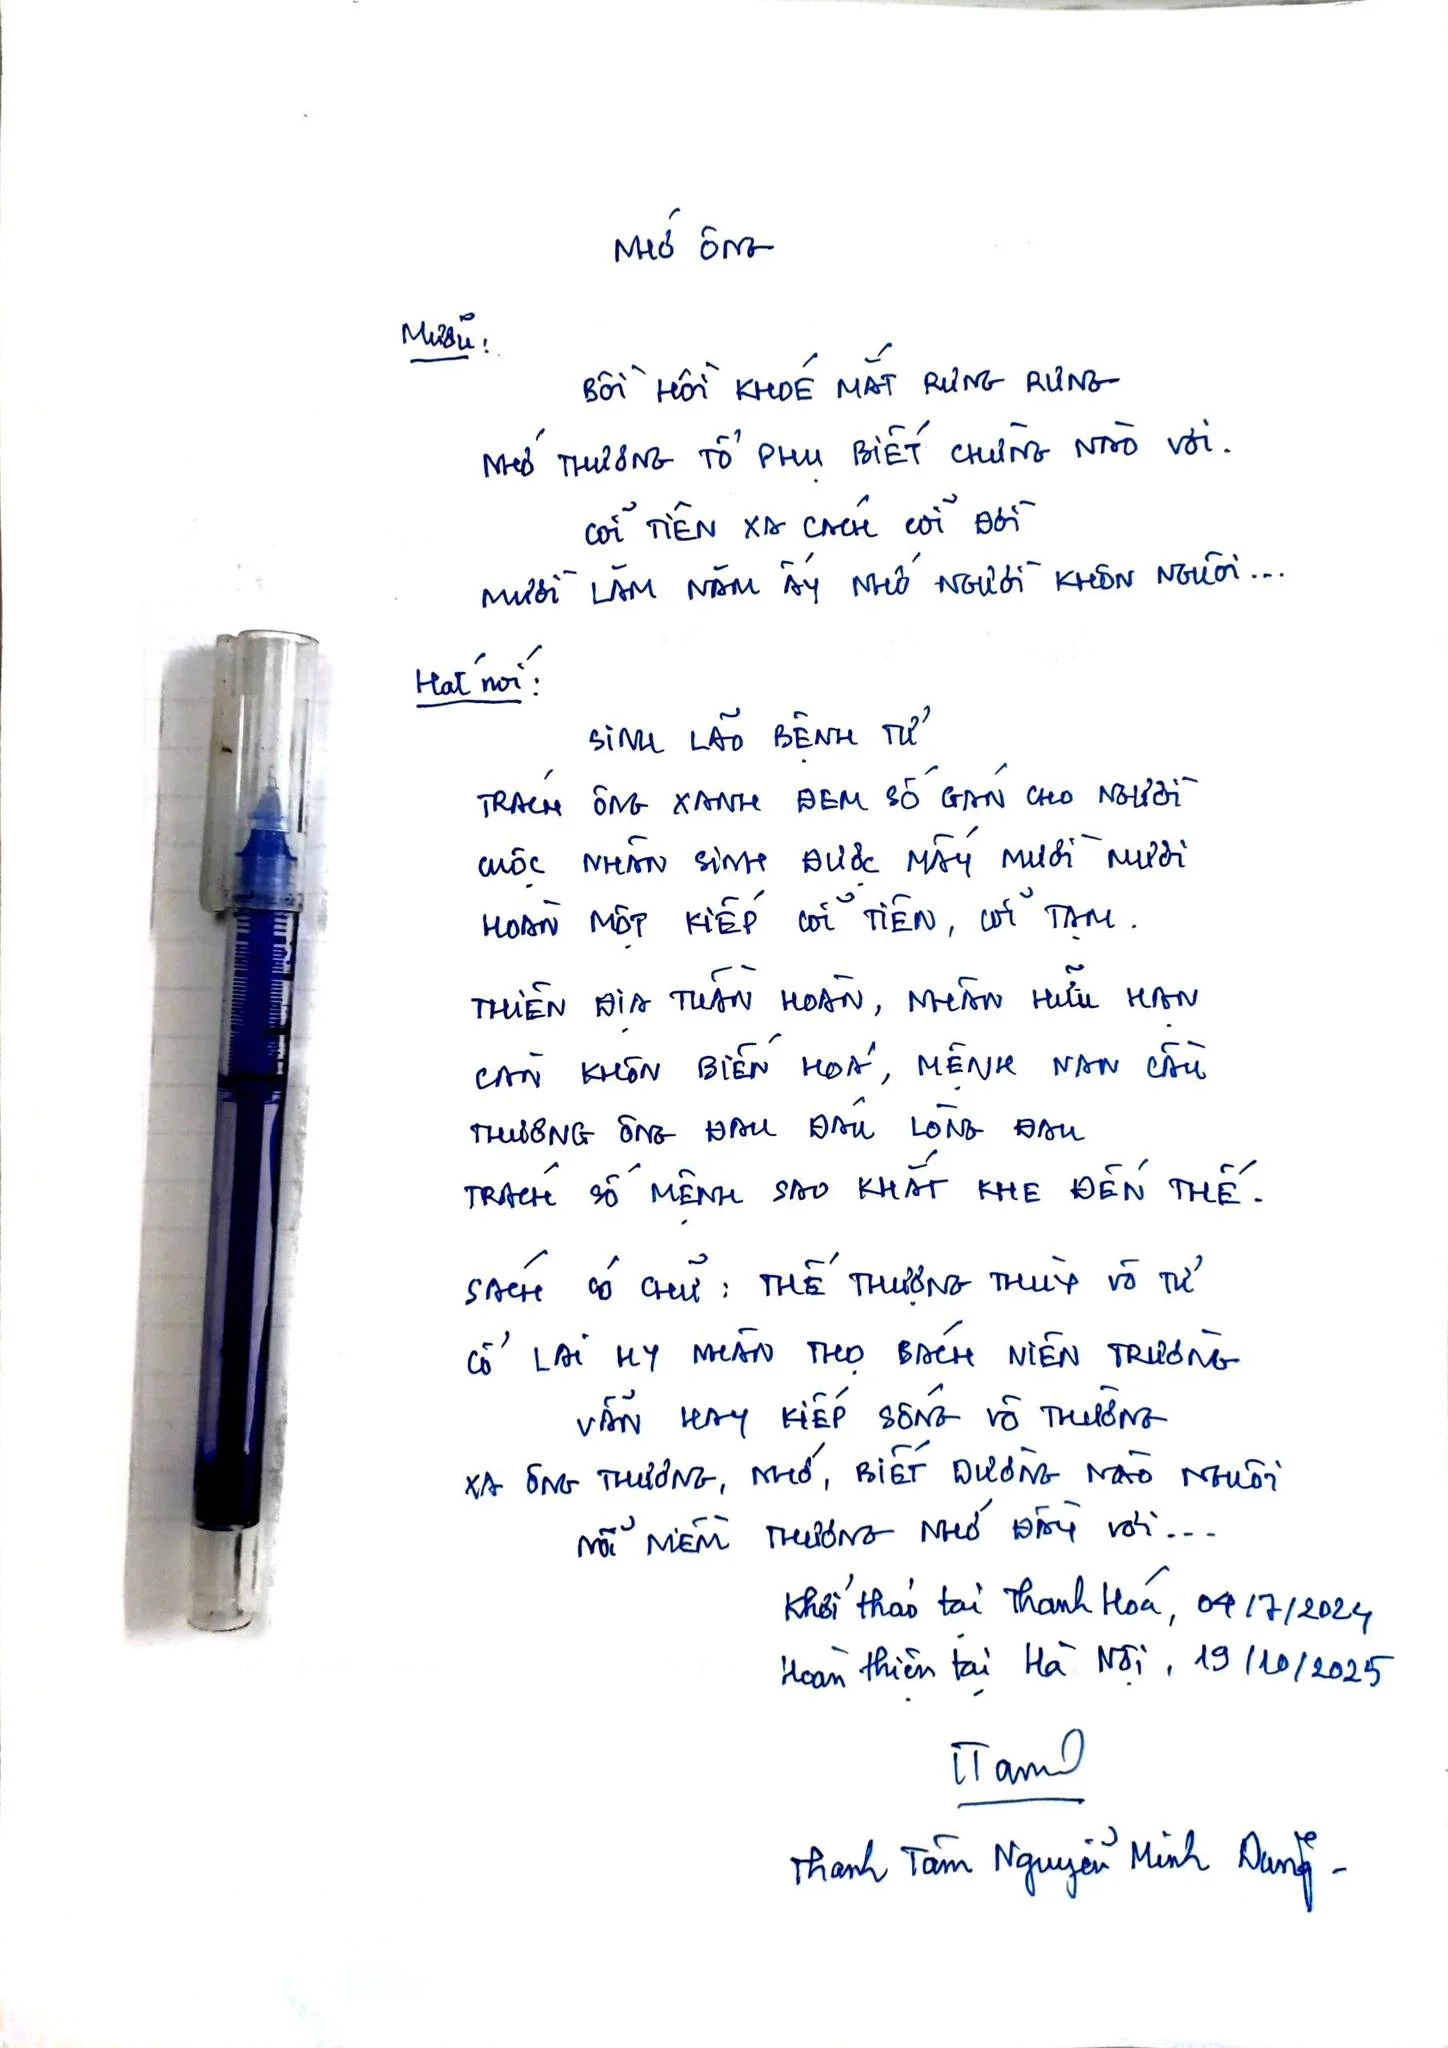 NHỚ ÔNG
Mưỡu:
BỒI HỒI KHOÉ MẮT RƯNG RƯNG
NHỚ THƯƠNG TỔ PHỤ BIẾT CHỪNG NÀO VƠI.
CÕI TIÊN XA CÁCH CÕI ĐỜI
MƯỜI LĂM NĂM ẤY NHỚ NGƯỜI KHÔN NGUÔI...
Hát nói:
SINH LÃO BỆNH TỬ
TRÁCH ÔNG XANH ĐEM SỐ GÁN CHO NGƯỜI
CUỘC NHÂN SINH ĐƯỢC MẤY MƯƠI MƯƠI
HOÀN MỘT KIẾP CÕI TIÊN, CÕI TẠM.
THIÊN ĐỊA TUẦN HOÀN, NHÂN HỮU HẠN
CÀN KHÔN BIẾN HOÁ, MỆNH NAN CẦU
THƯƠNG ÔNG ĐAU ĐÁU LÒNG ĐAU
TRÁCH SỐ MỆNH SAO KHẮT KHE ĐẾN THẾ.
SÁCH CÓ CHỮ: THẾ THƯỢNG THUỲ VÔ TỬ
CỔ LAI HY NHÂN THỌ BÁCH NIÊN TRƯỜNG
VẪN HAY KIẾP SỐNG VÔ THƯỜNG
XA ÔNG THƯƠNG, NHỚ, BIẾT DƯỜNG NÀO NGUÔI
NỖI NIỀM THƯƠNG NHỚ ĐẦY VƠI...
Khởi thảo tại Thanh Hoá, 04/7/2024
Hoàn thiện tại Hà Nội, 19/10/2025
TTam
Thanh Tâm Nguyễn Minh Dũng